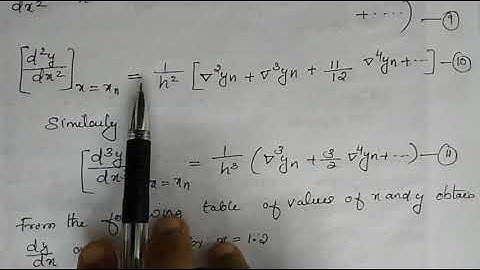 dx²
+ ....) — ⑨
[d²y/dx²] x = xn = 1/h² [∇²yn + ∇³yn + 11/12 ∇⁴yn + ...] — ⑩
Similarly
[d³y/dx x = xn = 1/h³ (∇³yn + 3/2 ∇⁴yn + ...) — ⑪
From the table of values of x and y obtain
dy/dx x = 1.2